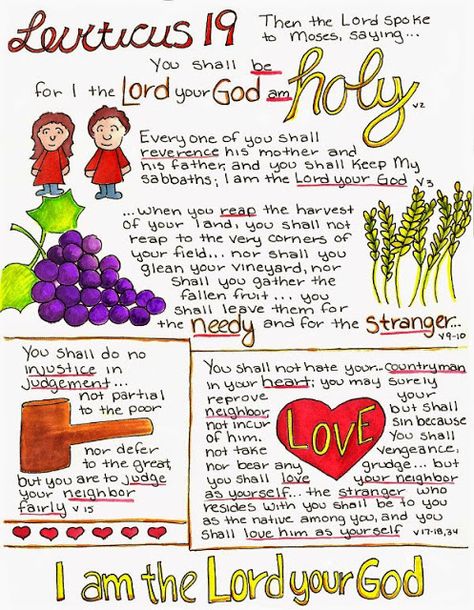 Leviticus 19
Then the Lord spoke
to Moses, saying...
You shall be
for I the Lord your God am holy
v2
Every one of you shall
reverence his mother and
his father, and you shall keep My
sabbaths; I am the Lord your God v3
...when you reap the harvest
of your land, you shall not
reap to the very corners of
your field... nor shall you
glean your vineyard, nor
shall you gather the
fallen fruit... you
shall leave them for
the needy and for the stranger...
v9-10
You shall do no
injustice in
judgement...
not partial
to the poor
nor defer
to the great,
but you are to judge
your neighbor
fairly v15
You shall not hate your...countryman
in your heart; you may surely
reprove your
neighbor but shall
not incur sin because
of him. You shall
not take vengeance,
nor bear any grudge... but
you shall love your neighbor
as yourself... the stranger who
resides with you shall be to you
as the native among you, and you
shall love him as yourself v17-18,34
LOVE
I am the Lord your God